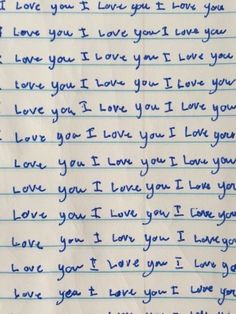 I Love you I Love you I Love you
I Love you I Love you I Love you
I Love you I Love you I Love you
I Love you I Love you I Love you
I Love you I Love you I Love you
I Love you I Love you I Love you
Love you I Love you I Love you
Love you I Love you I Love you
Love you I Love you I Love you
Love you I Love you I Love you
Love you I Love you I Love yo
Love you I Love you I Love yo
Love you I Love